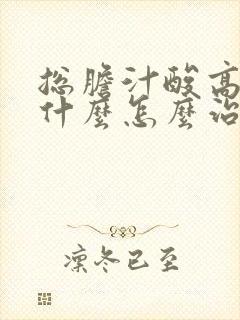 总膽汁酸高
什麼怎麼治
凜冬已至